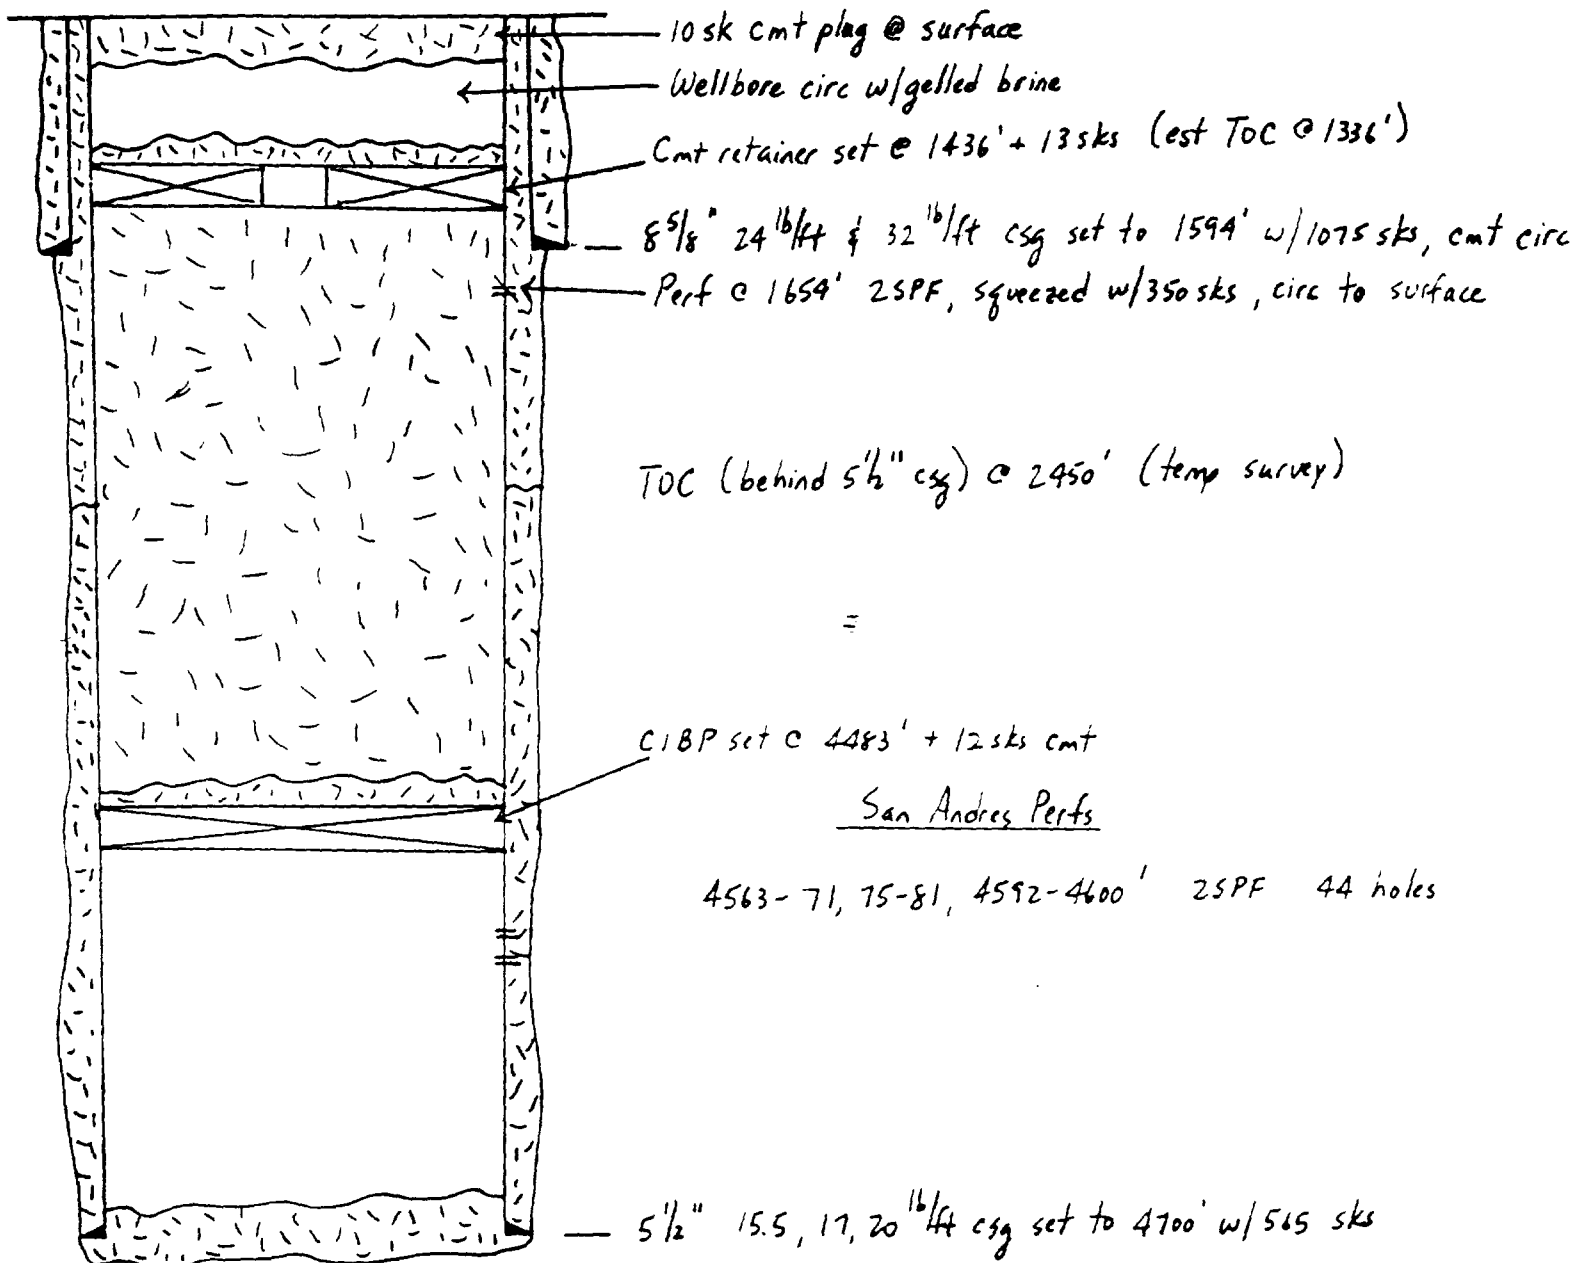 10 sk cmt plug @ surface
Wellbore circ w/gelled brine
Cmt retainer set @ 1436' + 13 sks (est TOC @ 1336')
8 5/8" 24 lb/ft & 32 lb/ft csg set to 1594' w/1075 sks, cmt circ
Perf @ 1654' 2SPF, squeezed w/350 sks, circ to surface
TOC (behind 5 1/2" csg) @ 2450' (temp survey)
CIBP set @ 4483' + 12 sks cmt
San Andres Perfs
4563-71, 75-81, 4592-4600' 2SPF 44 holes
5 1/2" 15.5, 17, 20 lb/ft csg set to 4700' w/565 sks